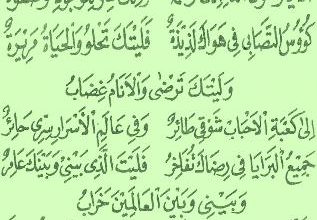 كُؤُوسُ التَّصَابِي فِي هَوَاكَ لَذِيذَةٌ فَلَيْتَكَ تَحْلُو وَالْحَيَاةُ مَرِيْرَةٌ
وَلَيْتَكَ تَرْضَى وَالْأَنَامُ غِضَابُ
إِلَى كَعْبَةِ الْأَحْبَابِ شَوْقِي طَائِرٌ وَفِي عَالَمِ الْأَسْرَارِ سِرِّي حَائِرٌ
جَمِيْعُ الْبَرَايَا فِي رِضَاكَ تُفَاخِرُ فَلَيْتَ الَّذِي بَيْنِيْ وَبَيْنَكَ عَامِرٌ
وَبَيْنِي وَبَيْنَ الْعَالَمِيْنَ خَرَابُ